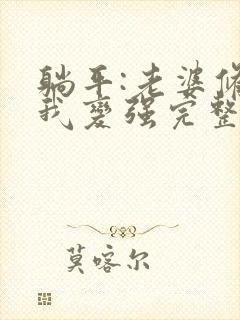 躺平:老婆修
我变强完整
莫喀尔